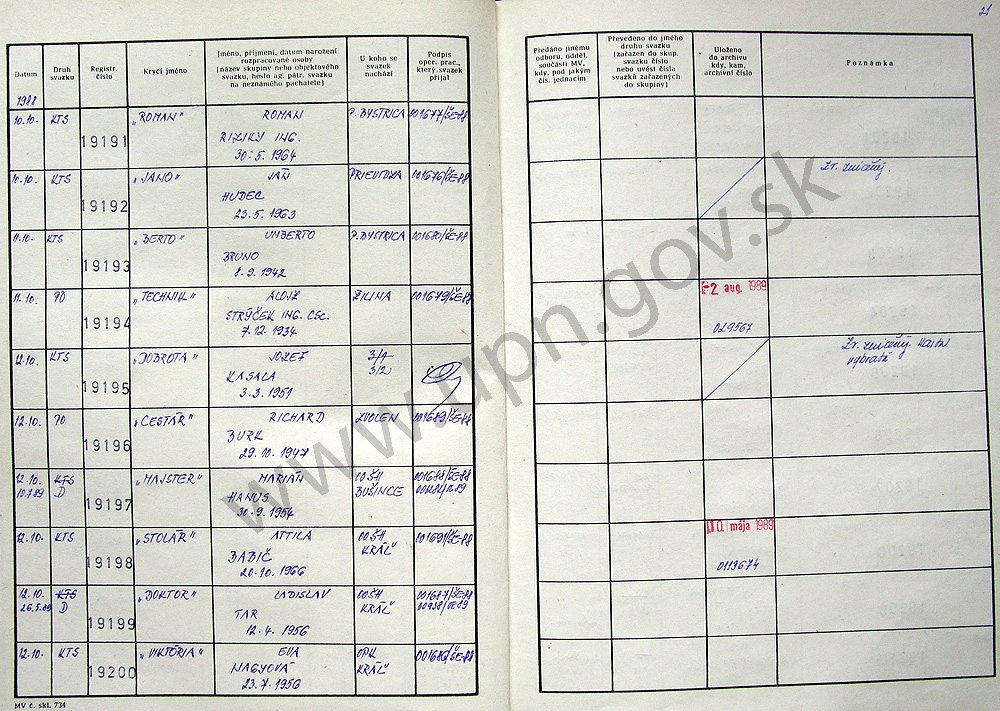 21
Datum
Druh svazku
Registr. číslo
Krycí jméno
Jméno, příjmení, datum narození rozpracované osoby (název skupiny nebo objektového svazku, heslo ag. pátr. svazku na neznámého pachatele)
U koho se svazek nachází
Podpis oper. prac., který svazek přijal
Předáno jinému odboru, odděl. součásti MV, kdy, pod jakým čís. jednacím
Převedeno do jiného druhu svazku (zařazen do skup. svazku číslo nebo uvést čísla svazků zařazených do skupiny)
Uloženo do archívu kdy, kam, archivní číslo
Poznámka
1988
10.10. KTS 19191 „ROMAN“ ROMAN P. BYSTRICA 001677/ŠE-88
RIZIKY ING.
30.5. 1964
10.10. KTS 19192 „JANO“ JÁN PRIEVIDZA 001676/ŠE-88 Zv. zničený.
HUDEC
23.5. 1963
11.10. KTS 19193 „BERTO“ UMBERTO P. BYSTRICA 001680/ŠE-88
BRUNO
8.9. 1942
11.10. PO 19194 „TECHNIK“ ALOJZ ŽILINA 001679/ŠE-88 -2 aug. 1989
STRÝČEK ING. CSC. 029567
7.12. 1934
12.10. KTS 19195 „DOBROTA“ JOZEF 3/1 Zv. zničený. Karta
KASALA 3/2 vybratá
3.3. 1951
12.10. PO 19196 „CESTÁR“ RICHARD ZVOLEN 001689/ŠE-88
BURK
29.10. 1947
12.10. KTS 19197 „MAJSTER“ MARIÁN OOŠH 001688/ŠE-88
10.7.89 D HANUS BUŠINCE
30.9. 1954
12.10. KTS 19198 „STOLÁR“ ATTILA OOŠH 001691/ŠE-88 10. mája 1989
BABIČ KRÁĽ 0113674
20.10. 1966
12.10. KTS 19199 „DOKTOR“ LADISLAV OOŠH 001687/ŠE-88
26.5.89 D TAR KRÁĽ
12.4. 1956
12.10. KTS 19200 „VIKTÓRIA“ EVA OPK 001686/ŠE-88
NAGYOVÁ KRÁĽ
23.7. 1956
MV č. skl. 734
www.upn.gov.sk